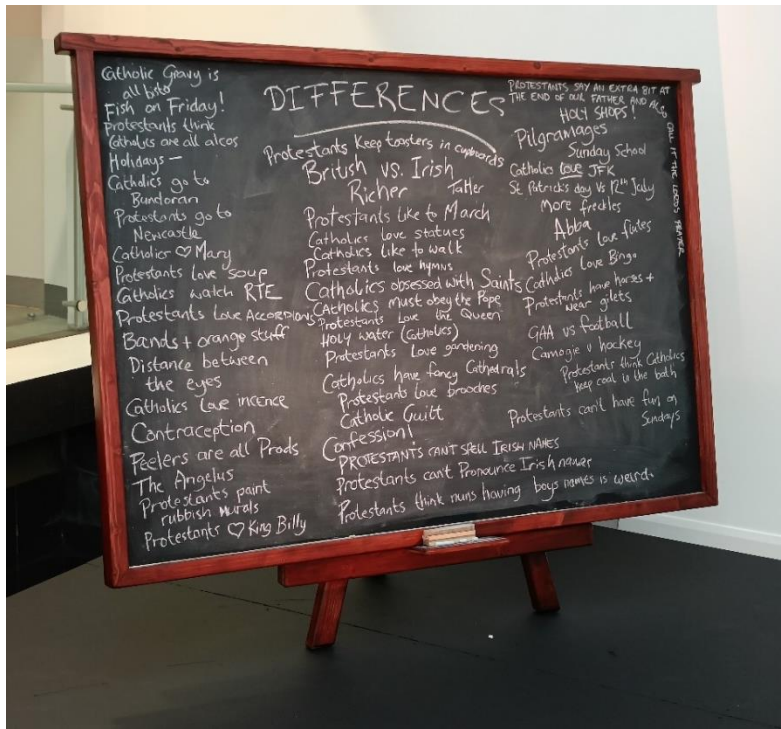 Catholic Gravy is
all bisto
Fish on Friday!
Protestants think
Catholics are all alcos
Holidays –
Catholics go to
Bundoran
Protestants go to
Newcastle
Catholics ♡ Mary
Protestants love soup
Catholics watch RTE
Protestants Love Accordions
Bands + orange stuff
Distance between
the eyes
Catholics Love incence
Contraception
Peelers are all Prods
The Angelus
Protestants paint
rubbish murals
Protestants ♡ King Billy
DIFFERENCES
Protestants Keep toasters in cupboards
British vs. Irish
Richer Taller
Protestants Like to March
Catholics love statues
Catholics like to walk
Protestants love hymns
Catholics obsessed with Saints
Catholics must obey the Pope
Protestants Love the Queen
HOLY water (Catholics)
Protestants Love gardening
Catholics have fancy Cathedrals
Protestants Love brooches
Catholic Guilt
Confession!
PROTESTANTS CANT SPELL IRISH NAMES
Protestants can't Pronounce Irish names
Protestants think nuns having boys names is weird.
PROTESTANTS SAY AN EXTRA BIT AT
THE END OF OUR FATHER AND ALSO
CALL IT THE LORDS PRAYER
HOLY SHOPS!
Pilgramages
Sunday School
Catholics love JFK
St Patrick's day Vs 12th July
More freckles
Abba
Protestants Love flutes
Catholics Love Bingo
Protestants have horses +
wear gilets
GAA vs football
Camogie v hockey
Protestants think Catholics
keep coal in the bath
Protestants can't have fun on
Sundays